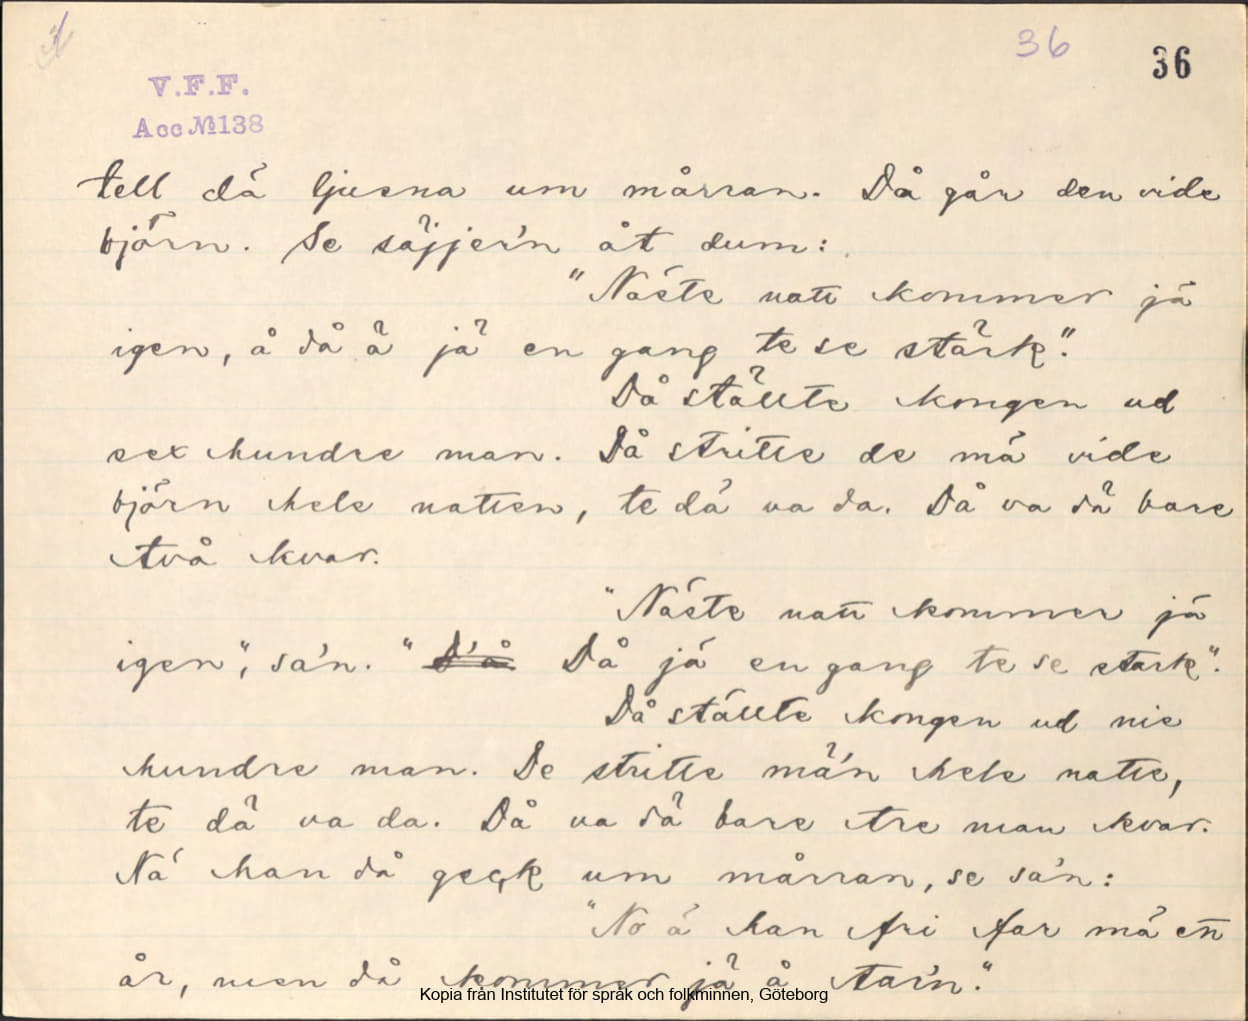 36
36
V.F.F.
Acc № 138
tell dä ljusna um mårran. Då går den vide
björn. Se säjjer'n åt dum:
"Näste natt kommer jä
igen, å då ä jä en gang te se stärk".
Då ställte kongen ud
sex hundre man. Då stritte de mä vide
björn hele natten, te dä va da. Då va dä bare
två kvar.
"Näste natt kommer jä
igen", sa'n. " Då jä en gang te se stark".
Då ställte kongen ud nie
hundre man. De stritte mä'n hele natte,
te dä va da. Då va dä bare tre man kvar.
Nä han då geck um mårran, se sa'n:
"No ä han fri far mä ett
år, men då kommer jä å tar'n."
Kopia från Institutet för språk och folkminnen, Göteborg